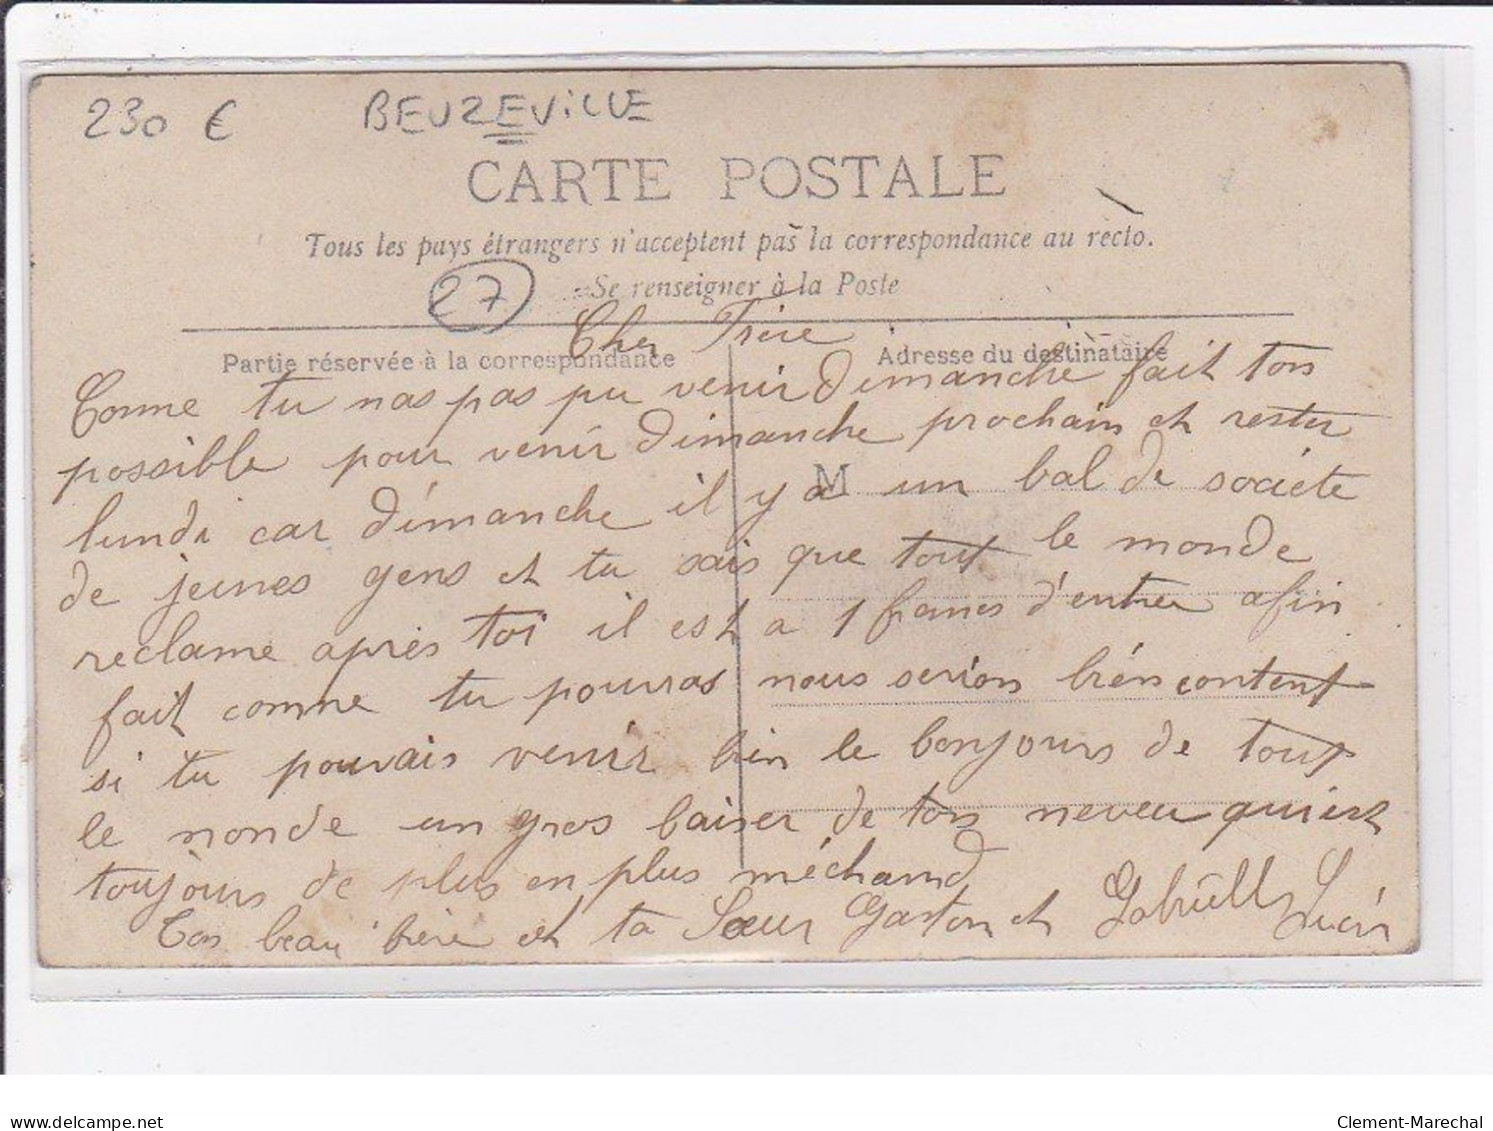 230 €
BEUZEVILLE
CARTE POSTALE
Tous les pays étrangers n'acceptent pas la correspondance au recto.
27
Se renseigner à la Poste
Cher Frère
Partie réservée à la correspondance
Adresse du destinataire
Comme tu nas pas pu venir dimanche fait ton
possible pour venir dimanche prochain et rester
M
lundi car dimanche il y a un bal de societe
de jeunes gens et tu sais que tout le monde
reclame après toi il est a 1 francs d'entrer afin
fait comme tu pourras nous serion bien content
si tu pouvais venir bien le bonjours de tout
le monde un gros baiser de ton neveu qui est
toujours de plus en plus méchand
Ton beau frère et ta Sœur Gaston et Gabrielle Lucien
delcampe.net
Clement-Marechal